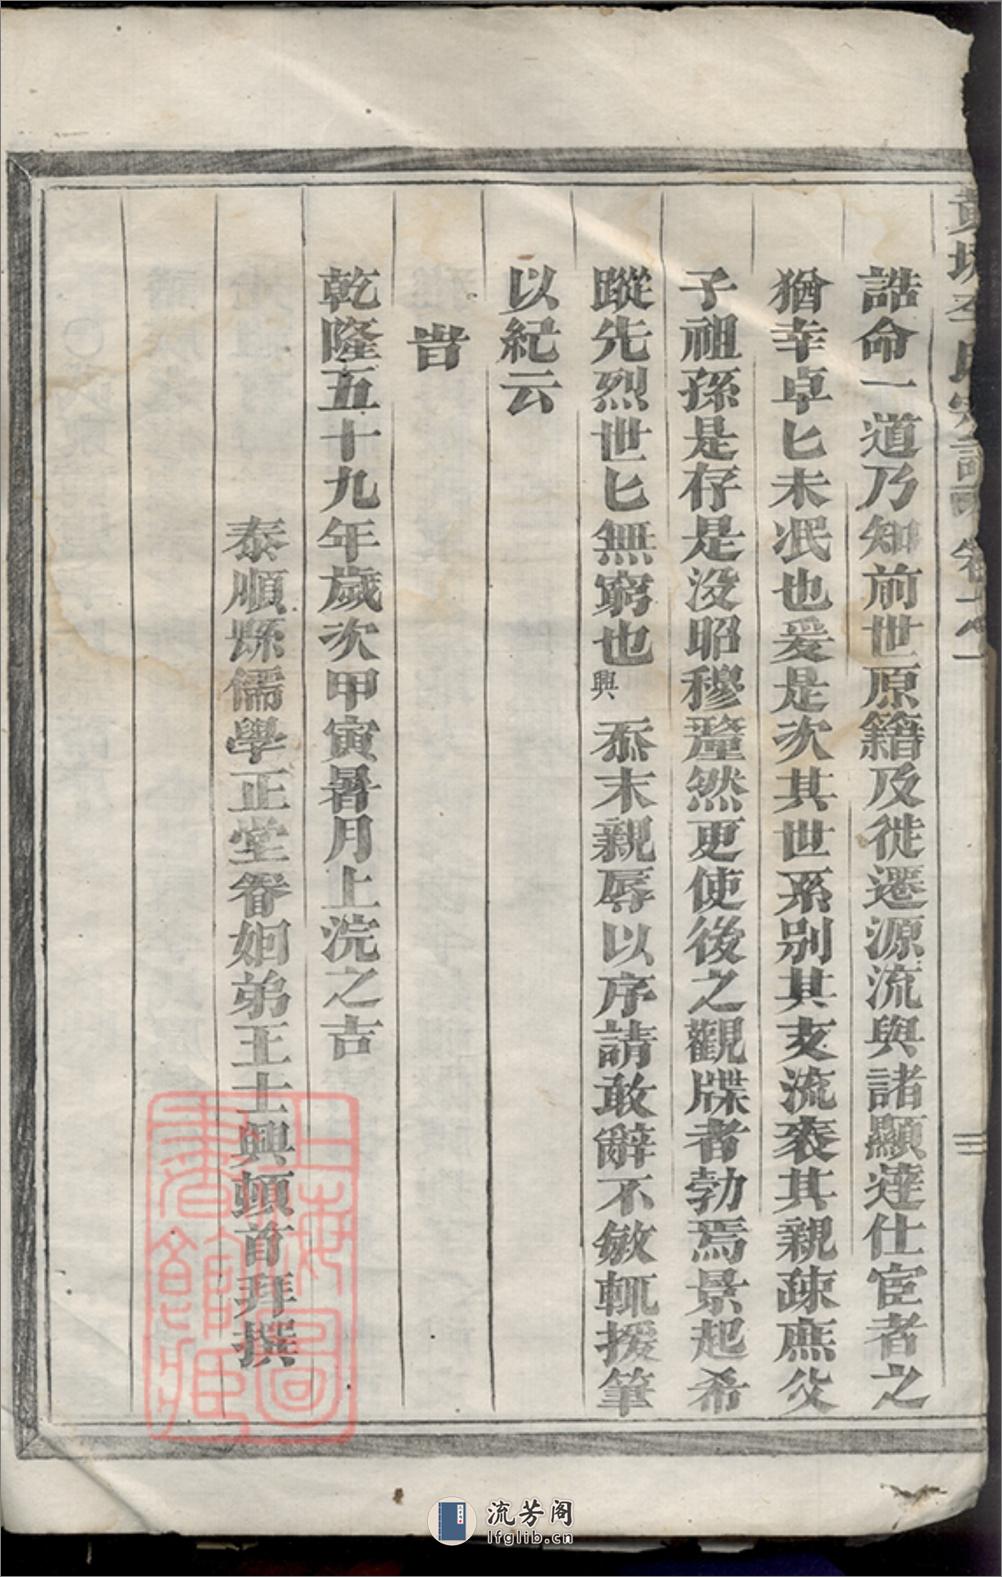 誥命一道乃知前世原籍及徙遷源流與諸顯達仕宦者之
猶幸卓匕未泯也爰是次其世系別其支流袠其親疎廡父
子祖孫是存是沒昭穆釐然更使後之觀牒者勃焉景起希
蹤先烈世匕無窮也興忝末親辱以序請敢辭不敏輒援筆
以紀云
旹
乾隆五十九年歲次甲寅暑月上浣之吉
泰順縣儒學正堂眷姻弟王士興頓首拜撰
上海圖書館藏
流芳阁
lfglib.cn